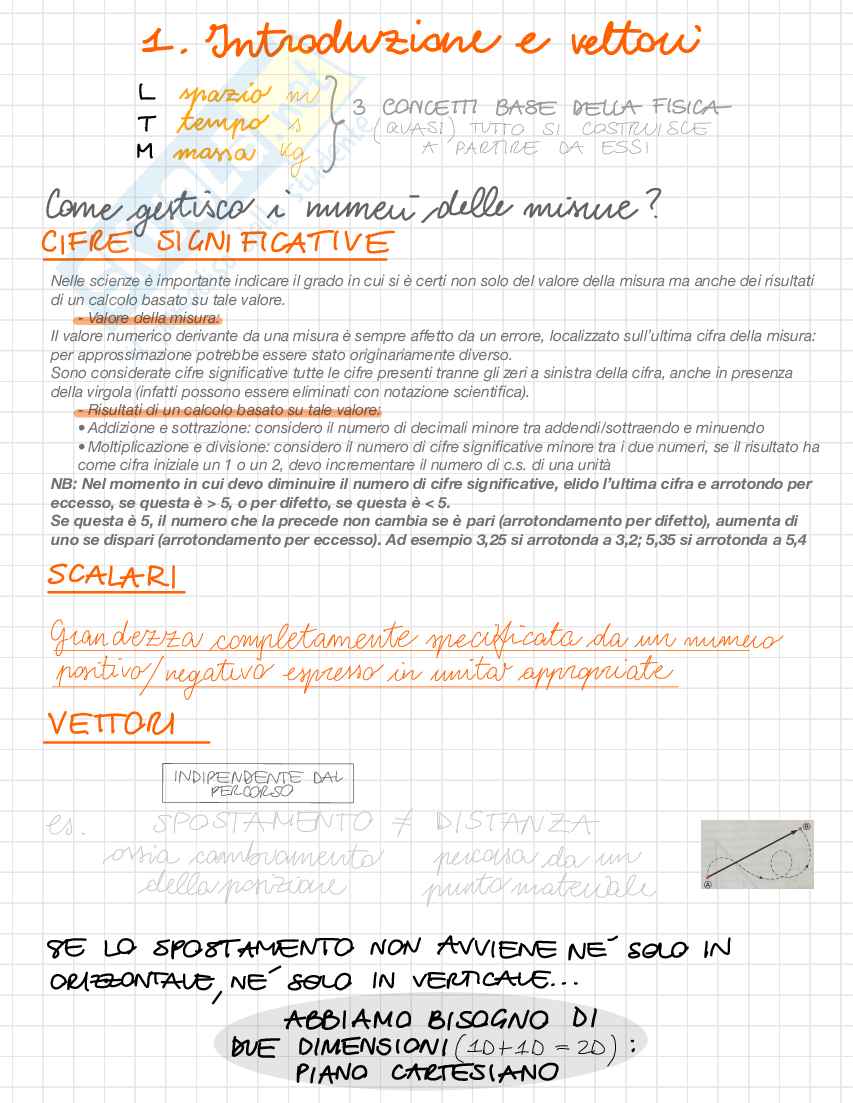 1. Introduzione e vettori
L spazio m
T tempo s
M massa kg
3 CONCETTI BASE DELLA FISICA
(QUASI) TUTTO SI COSTRUISCE
A PARTIRE DA ESSI
Come gestisco i numeri delle misure?
CIFRE SIGNIFICATIVE
Nelle scienze è importante indicare il grado in cui si è certi non solo del valore della misura ma anche dei risultati
di un calcolo basato su tale valore.
- Valore della misura:
Il valore numerico derivante da una misura è sempre affetto da un errore, localizzato sull'ultima cifra della misura:
per approssimazione potrebbe essere stato originariamente diverso.
Sono considerate cifre significative tutte le cifre presenti tranne gli zeri a sinistra della cifra, anche in presenza
della virgola (infatti possono essere eliminati con notazione scientifica).
- Risultati di un calcolo basato su tale valore:
• Addizione e sottrazione: considero il numero di decimali minore tra addendi/sottraendo e minuendo
• Moltiplicazione e divisione: considero il numero di cifre significative minore tra i due numeri, se il risultato ha
come cifra iniziale un 1 o un 2, devo incrementare il numero di c.s. di una unità
NB: Nel momento in cui devo diminuire il numero di cifre significative, elido l'ultima cifra e arrotondo per
eccesso, se questa è > 5, o per difetto, se questa è < 5.
Se questa è 5, il numero che la precede non cambia se è pari (arrotondamento per difetto), aumenta di
uno se dispari (arrotondamento per eccesso). Ad esempio 3,25 si arrotonda a 3,2; 5,35 si arrotonda a 5,4
SCALARI
Grandezza completamente specificata da un numero
positivo/negativo espresso in unità appropriate
VETTORI
INDIPENDENTE DAL
PERCORSO
es. SPOSTAMENTO ≠ DISTANZA
ossia cambiamento percorsa da un
della posizione punto materiale
A B
SE LO SPOSTAMENTO NON AVVIENE NÉ SOLO IN
ORIZZONTALE, NÉ SOLO IN VERTICALE...
ABBIAMO BISOGNO DI
DUE DIMENSIONI (1D+1D = 2D) :
PIANO CARTESIANO